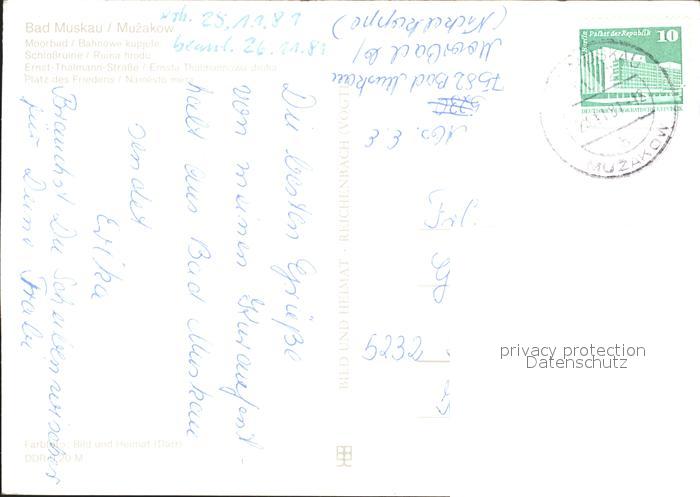 Bad Muskau / Mużakow
Moorbad / Bahnowe kupjele
Schloßruine / Ruina hrodu
Ernst-Thälmann-Straße / Ernsta Thälmannowa droha
Platz des Friedens / Naměsto měra
erh. 25.11.81
beant. 26.11.81
Die besten Grüße
von meinen Kuraufent-
halt aus Bad Muskau
sendet
Erika
Brauchst Du Scheibenwischer
für Deine Trabi
Farbfoto: Bild und Heimat (Darr)
DDR 0,20 M
BILD UND HEIMAT · REICHENBACH (VOGTL
Abs. E. E
7582 Bad Muskau
Moorbad
5232
Berlin Palast der Republik
10
DEUTSCHE DEMOKRATISCHE REPUBLIK
MUŽAKOW
privacy protection
Datenschutz